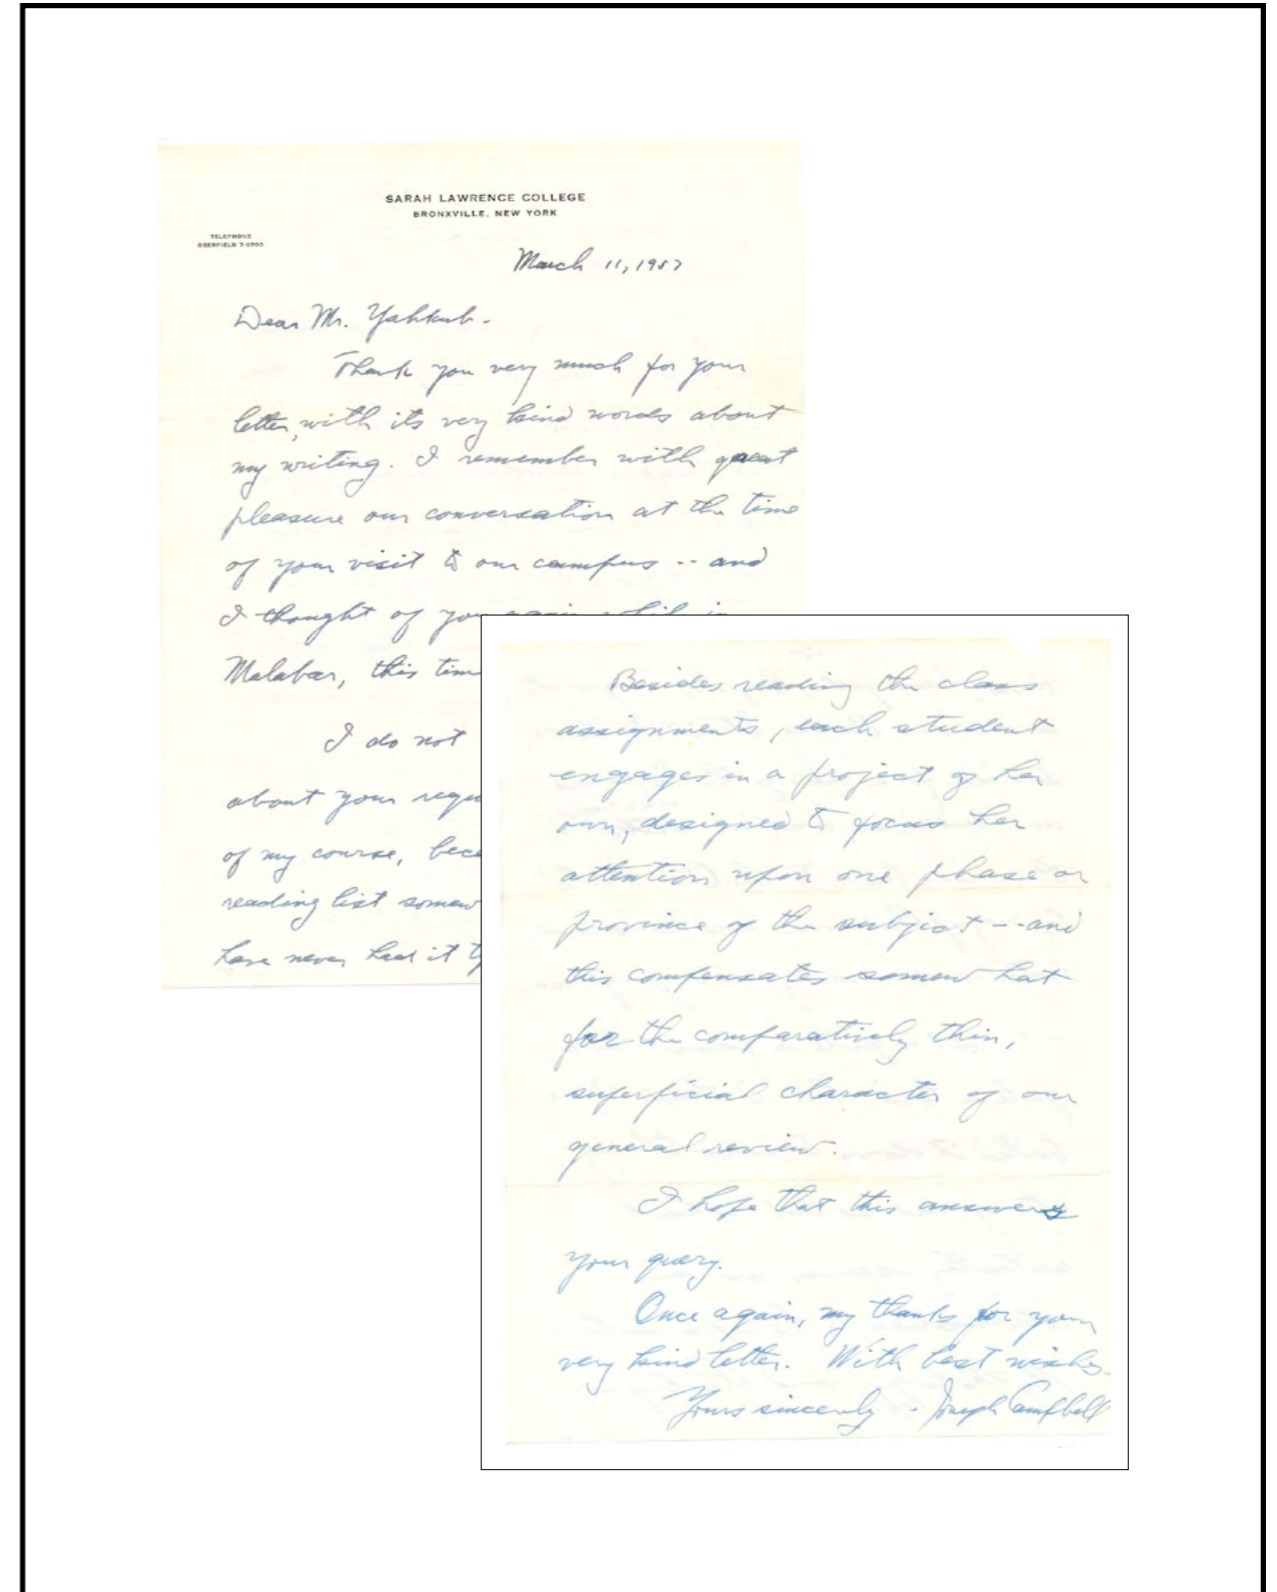 SARAH LAWRENCE COLLEGE
BRONXVILLE, NEW YORK
TELEPHONE
DEERFIELD 7-0700
March 11, 1957
Dear Mr. Yahkub -
Thank you very much for your
letter, with its very kind words about
my writing. I remember with great
pleasure our conversation at the time
of your visit to our campus -- and
I thought of you again while in
Malabar, this time
I do not
about your requ
of my course, bec
reading list somew
have never had it ty
Besides reading the class
assignments, each student
engages in a project of her
own, designed to focus her
attention upon one phase or
province of the subject -- and
this compensates somewhat
for the comparatively thin,
superficial character of our
general review.
I hope that this answers
your query.
Once again, my thanks for your
very kind letter. With best wishes.
Yours sincerely - Joseph Campbell